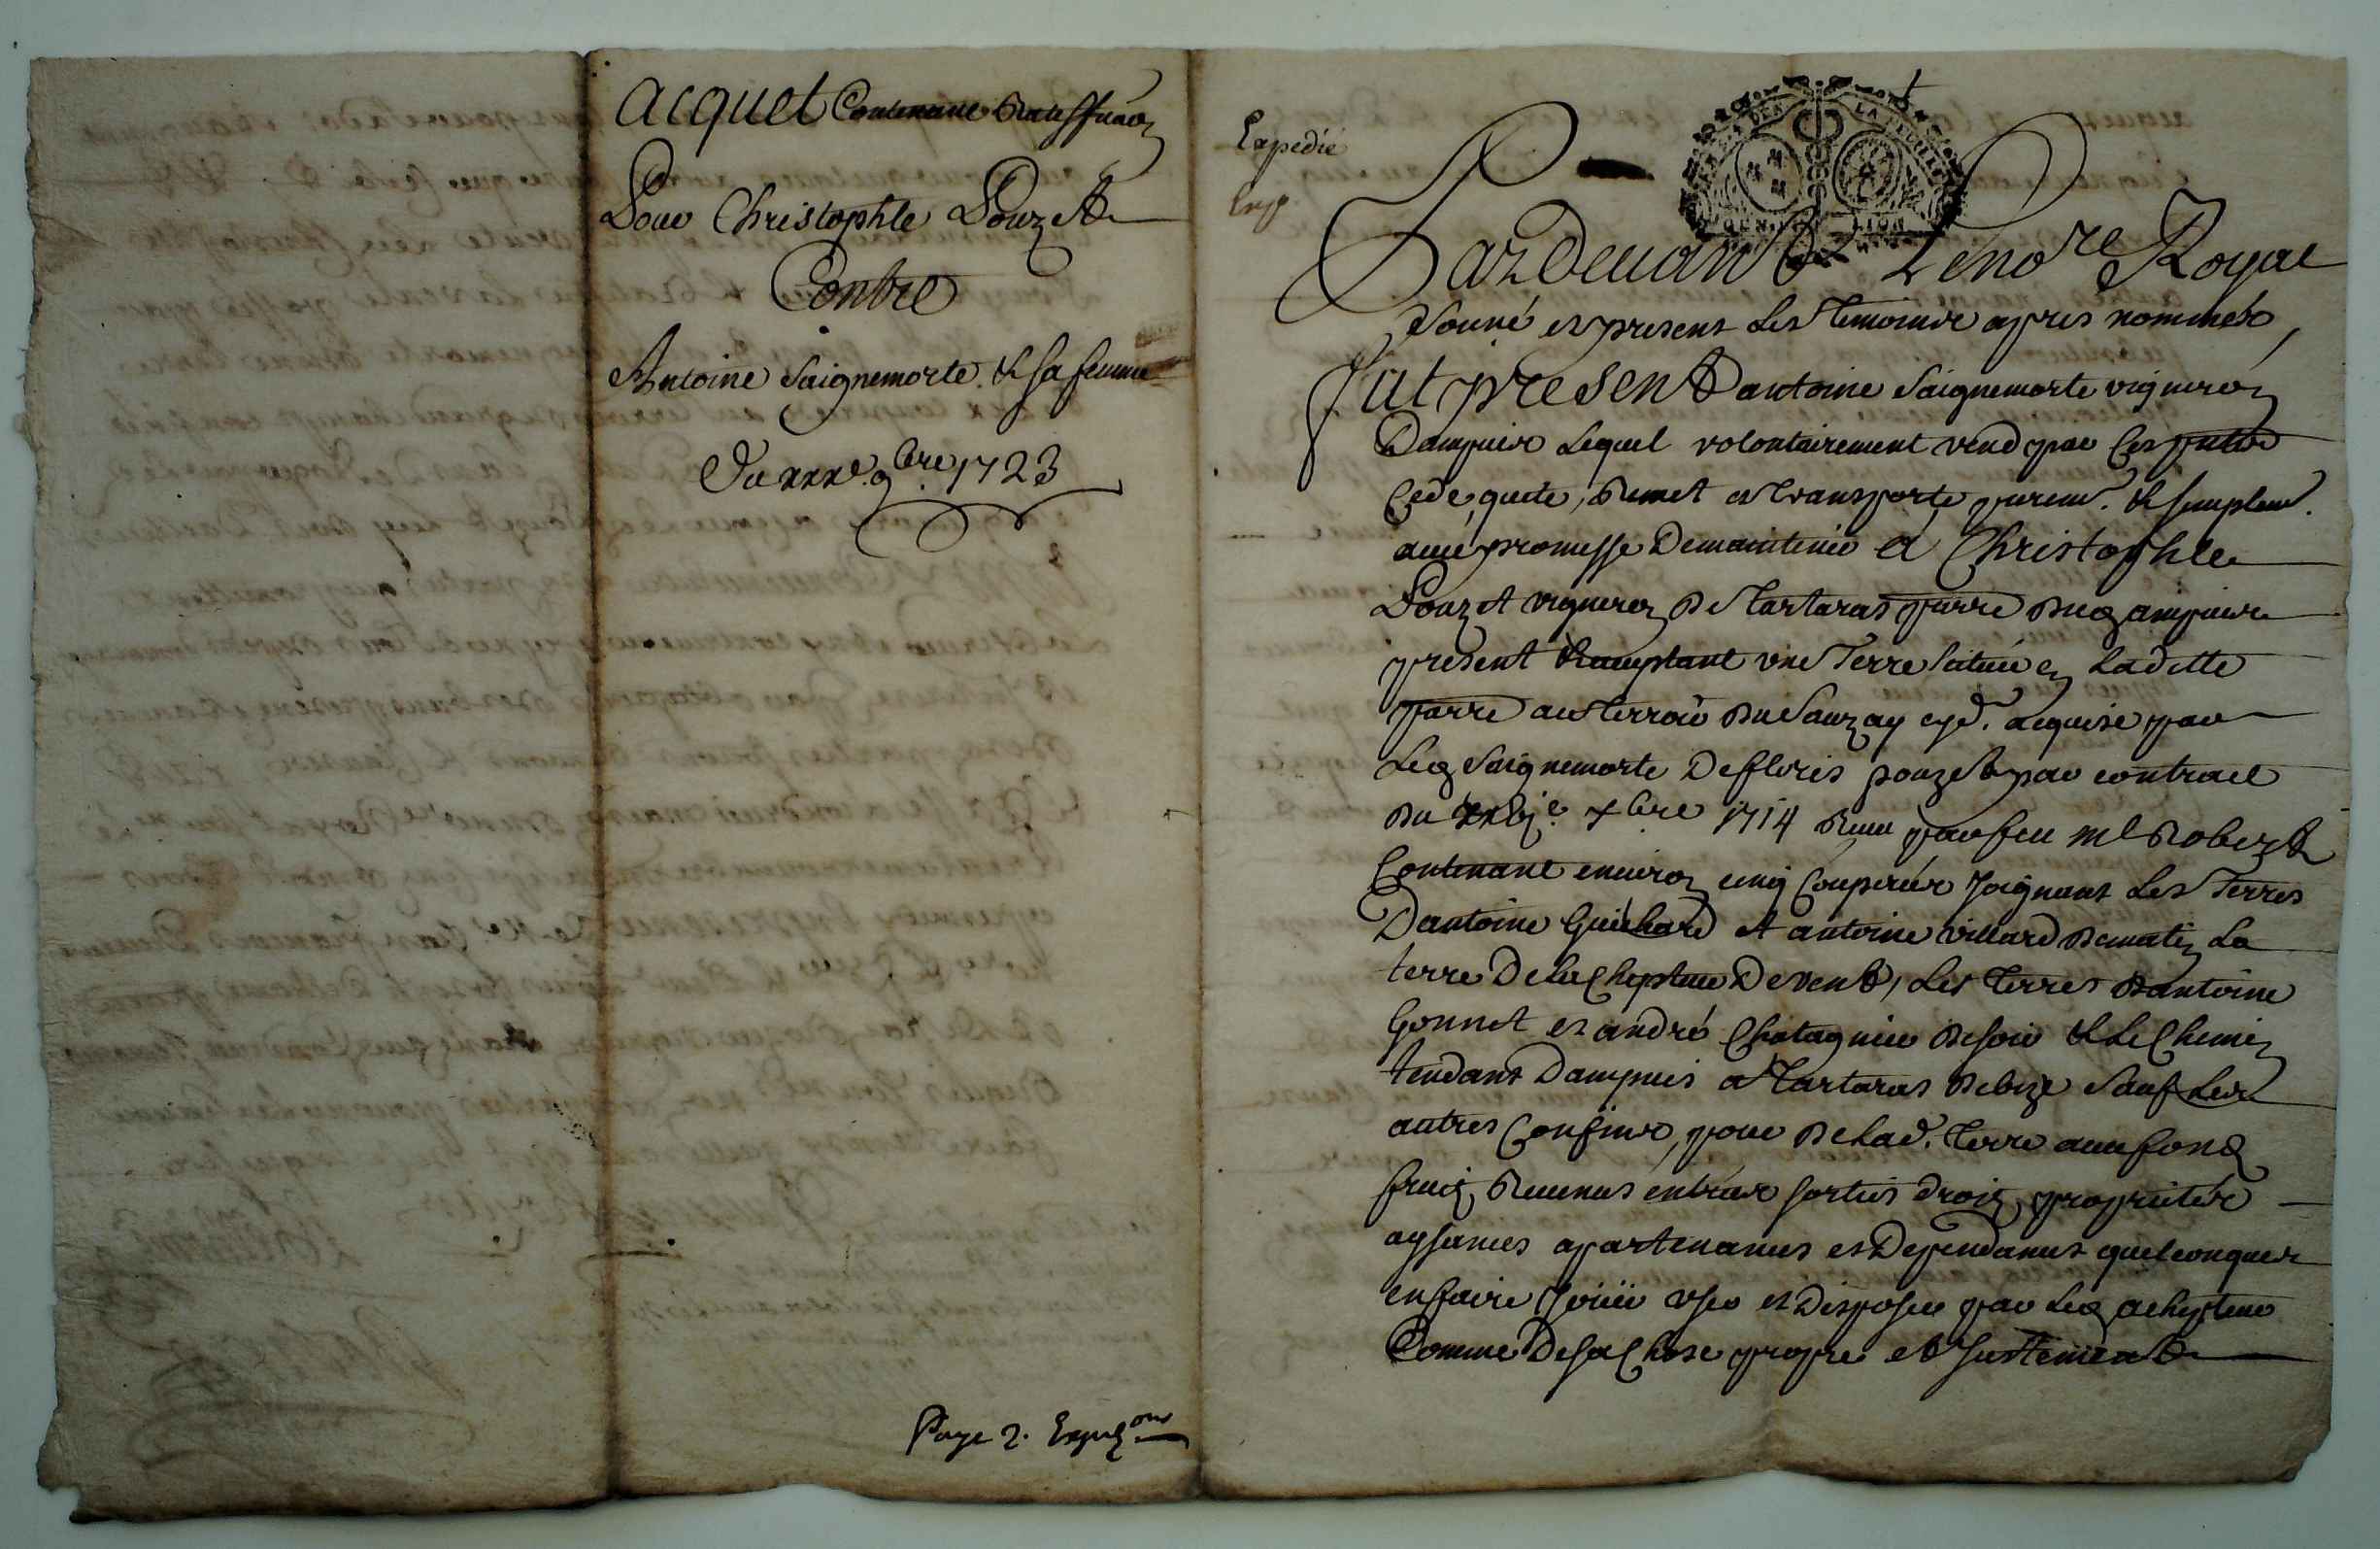 acquet Contenant Rateffiraon
Pour Christophle Pouzet
Contre
Antoine Saignemorte & sa femme
Du xxxe. 9bre. 1723
Paye 2. Expedons
Expedié
Exp
GEN. DE LION
Pardevant Le nore Royal
Sousné et present Les Temoins apres nommés,
fut present antoine Saignemorte vigneron
Dampuis Lequel volontairement vend par Ces pntes
Cede, quite, Remet et transporte purem. & simplem.
avec promesse De maintenir a Christophle
Pouzet vigneron De Tartaras parre Dud ampuis
present & acceptant une Terre situeé en Laditte
parre au Terroir Du Sauzay cyd. acquise par
Led Saignemorte De floris pouzet par contract
Du xxbje. xbre 1714 Receu par feu me Robert
Contenant environ cinq Couperées Joignant Les Terres
Dantoine Guichard et antoine villard De matin La
terre De lachepteur De vent, Les terres Dantoine
Gonnet et andré Chatagnier De soir & Le Chemin
tendant Dampuis a Tartaras De bize Sauf Les
autres Confins, pour De lad. terre avec fond
fruits Revenus entrées sorties droits proprietés
aysances apartenances et Dependances quelconques
en faire Jouïr user et Disposer par Led achepteur
Comme De sa Chose propre et Justement